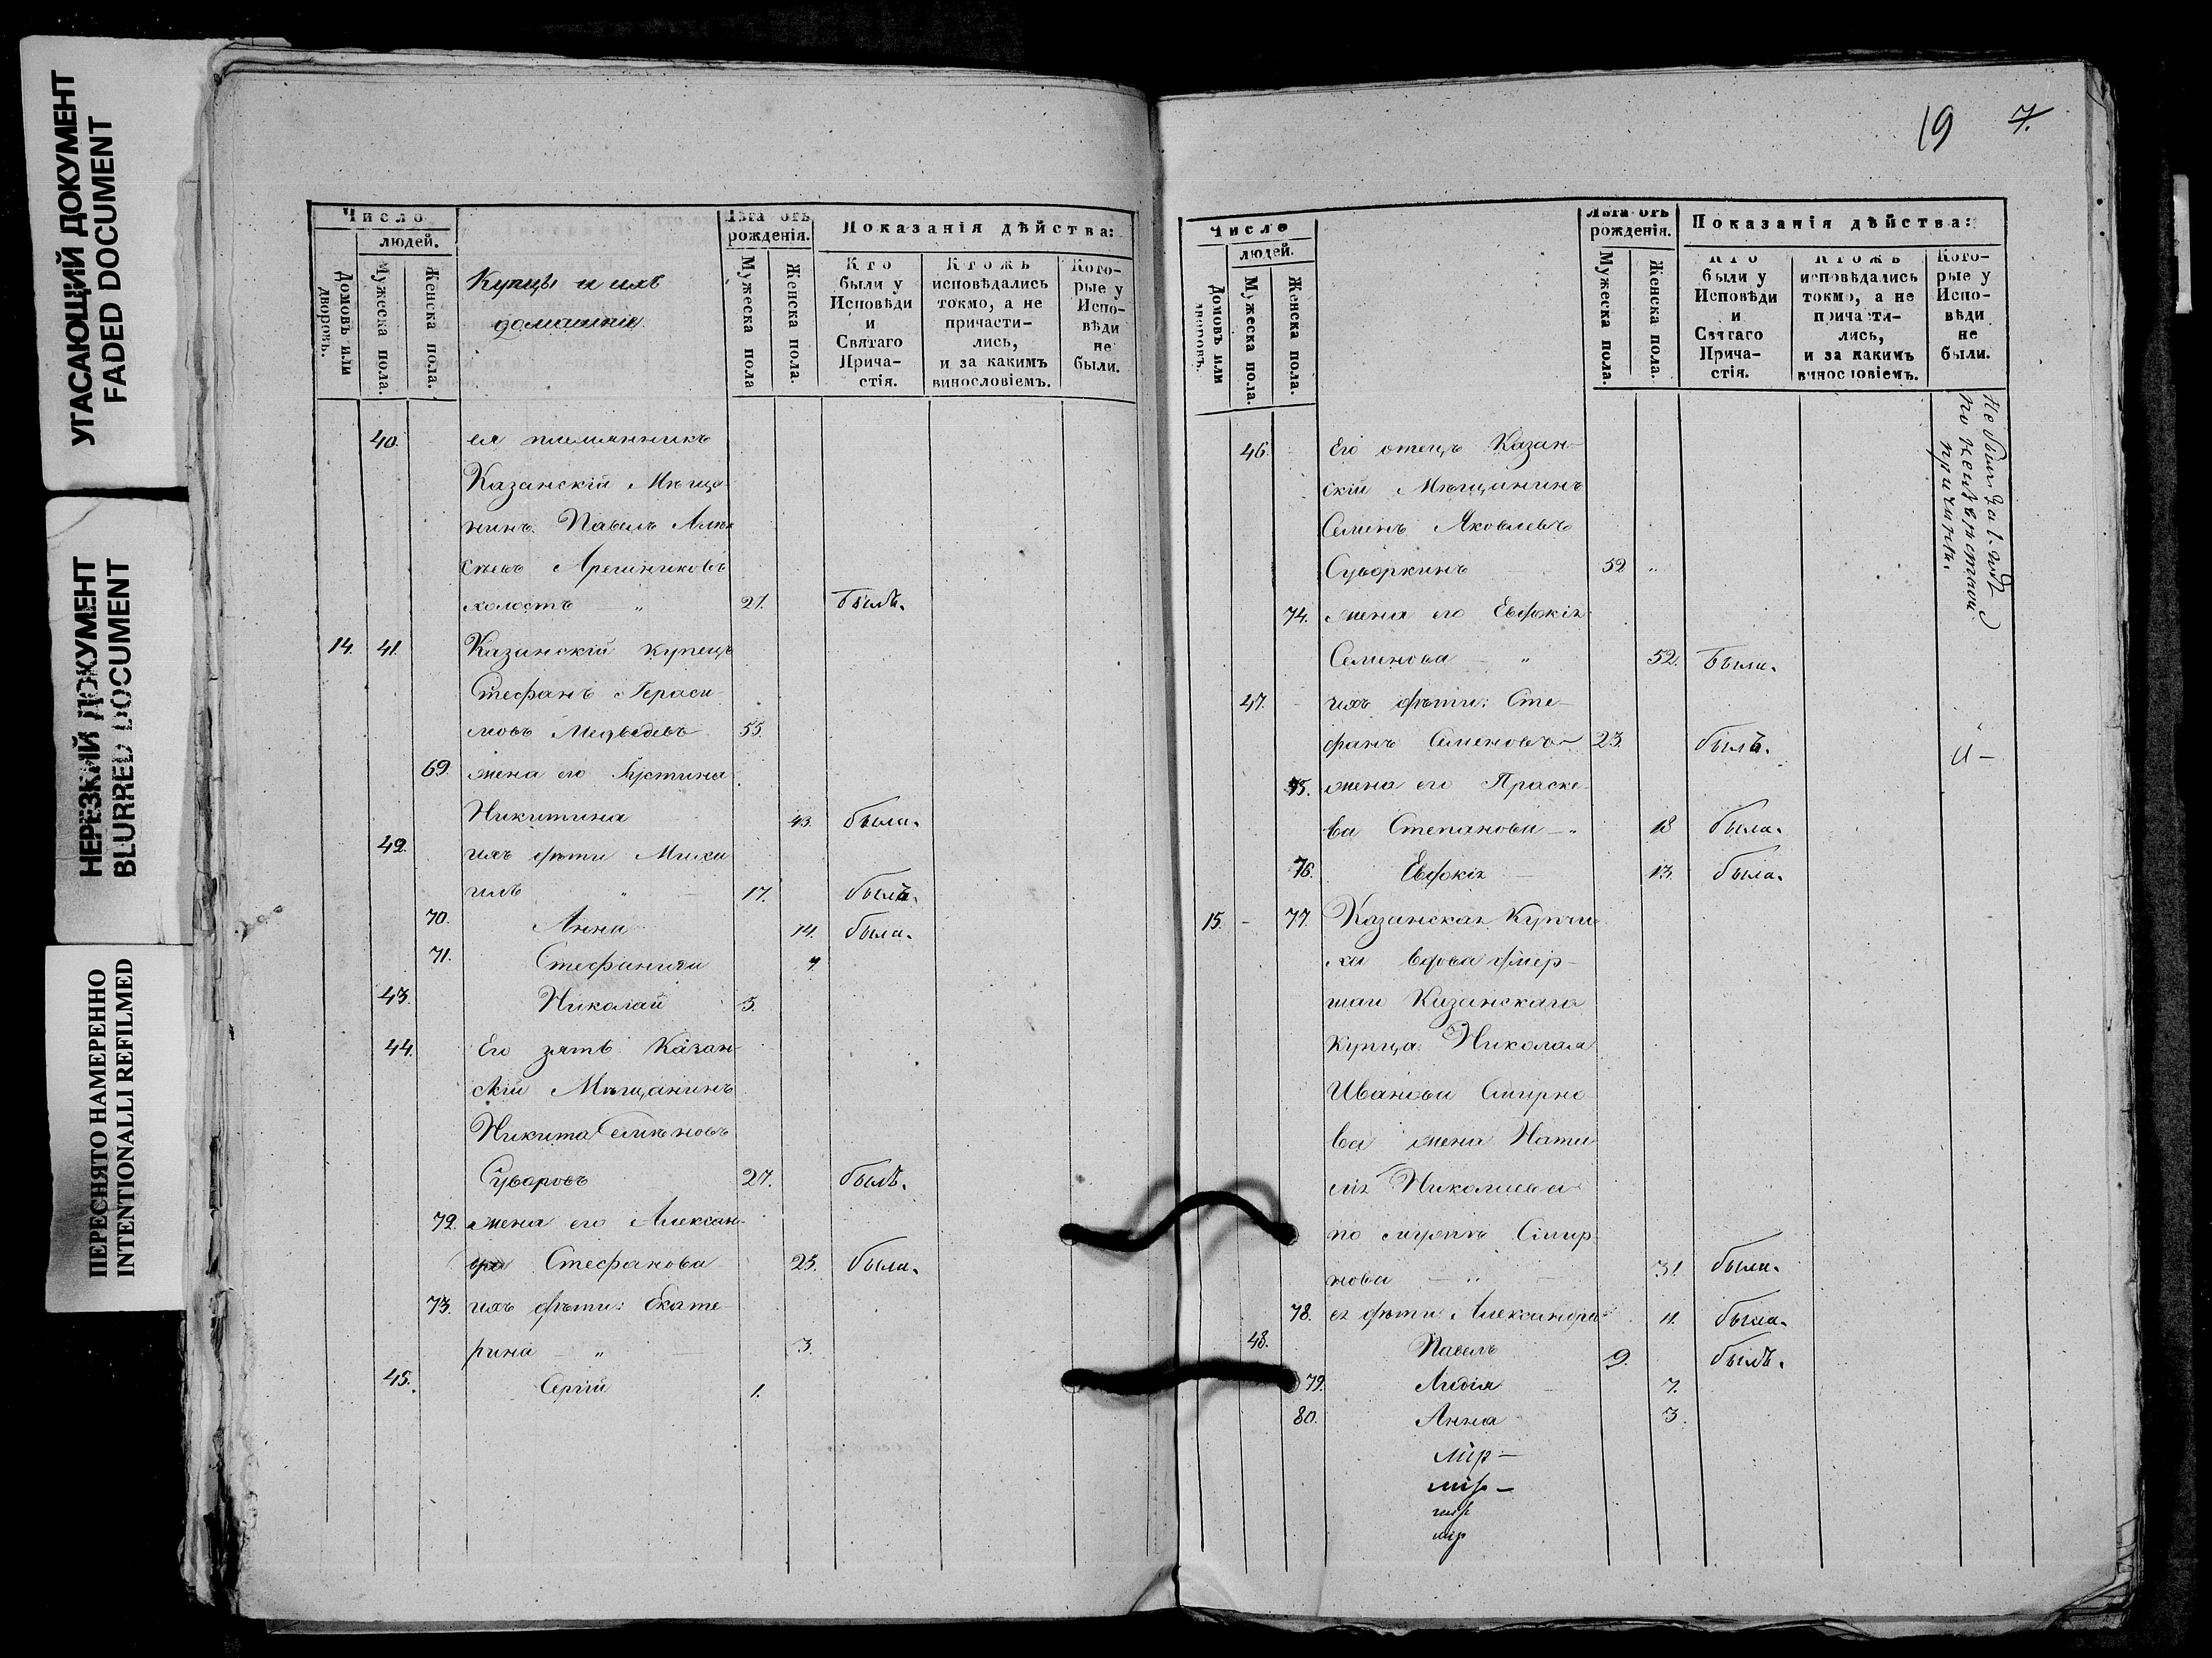 УГАСАЮЩИЙ ДОКУМЕНТ
FADED DOCUMENT
НЕРЕЗКИЙ ДОКУМЕНТ
BLURRED DOCUMENT
ПЕРЕСНЯТО НАМЕРЕННО
INTENTIONALLI REFILMED
Число
людей.
Домовъ или дворовъ.
Мужеска пола.
Женска пола.
Купцы и ихъ
домашніе.
Лѣта отъ рожденія.
Мужеска пола
Женска пола.
Показанія дѣйства:
Кто были у Исповѣди и Святаго Прича-стія.
Ктожъ исповѣдались токмо, а не причасти-лись, и за какимъ винословіемъ.
Кото-рые у Испо-вѣди не были.
40. ея племянникъ
Казанскій Мѣща
нинъ Павелъ Алек
сѣевъ
холостъ „ 21. былъ.
14. 41. Казанскій купецъ
Стефанъ Гераси
мовъ Медвѣдевъ 55.
69. жена его Іустина
Никитина 43. была.
42. ихъ дѣти Миха
илъ „ 17. былъ.
70. Анна 14. была.
71. Стефанида 7.
43. Николай 5.
44. Его зять Казан
скій Мѣщанинъ
Никита Семеновъ
Суваровъ 27. былъ.
72. жена его Алексан
дра Стефанова 25. была.
73. ихъ дѣти: Екате
рина „ 3.
45. Сергій 1.
19 7.
Число
людей.
Домовъ или дворовъ.
Мужеска пола.
Женска пола.
Лѣта отъ рожденія.
Мужеска пола.
Женска пола.
Показанія дѣйства:
Кто были у Исповѣди и Святаго Прича-стія.
Ктожъ исповѣдались токмо, а не причасти-лись, и за какимъ винословіемъ.
Кото-рые у Испо-вѣди не были.
46. Его отецъ Казан
скій Мѣщанинъ
Семенъ Яковлевъ
Суворкинъ 52 „
Не былъ за 1. годъ
по неизвѣстной
причинѣ.
74. жена его Евдокія
Семенова „ 52. была.
47. ихъ дѣти: Сте
фанъ Семеновъ 23. былъ.
75. жена его Праске
ва Степанова „ 18 была.
76. Евдокія 13. была.
15. - 77. Казанская Купчи
ха вдова умер
шаго Казанскаго
купца Николая
Иванова Смирно
ва жена Ната
лія Николаева
по мужѣ Смир
нова „ 31. была.
78. ея дѣти Александра 11. была.
48. Павелъ 9. былъ.
79. Лидія 7.
80. Анна 3.